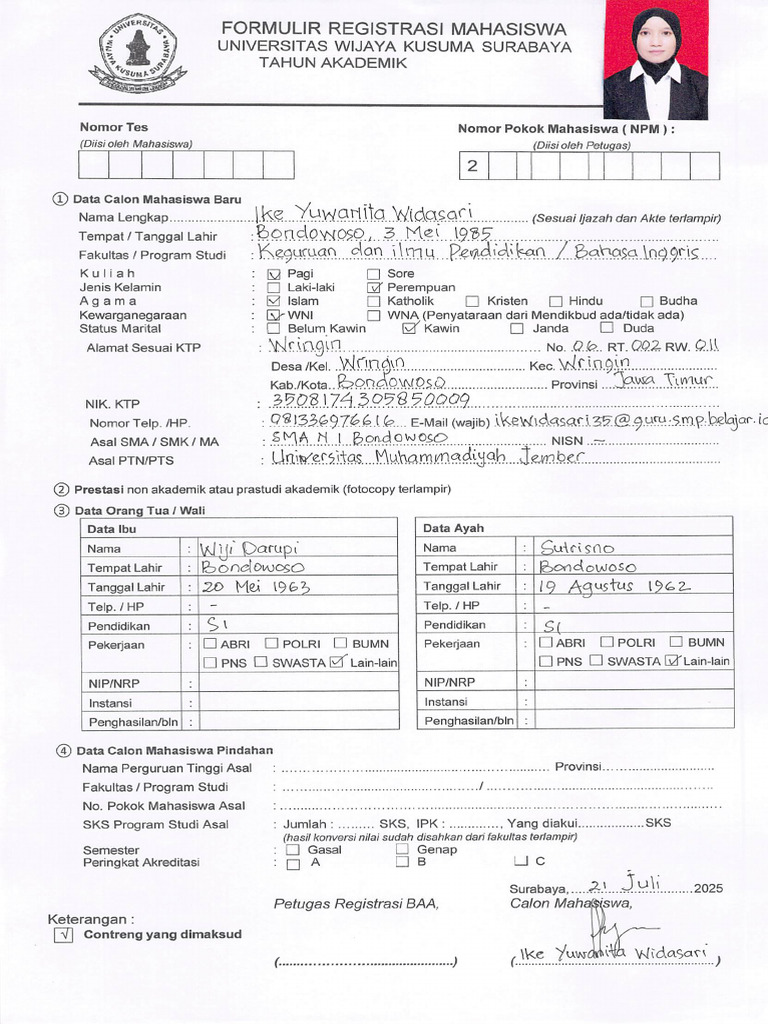 UNIVERSITAS
WIJAYA KUSUMA SURABAYA
FORMULIR REGISTRASI MAHASISWA
UNIVERSITAS WIJAYA KUSUMA SURABAYA
TAHUN AKADEMIK
Nomor Tes
(Diisi oleh Mahasiswa)
Nomor Pokok Mahasiswa ( NPM ) :
(Diisi oleh Petugas)
2
1 Data Calon Mahasiswa Baru
Nama Lengkap Ike Yuwanita Widasari (Sesuai Ijazah dan Akte terlampir)
Tempat / Tanggal Lahir : Bondowoso, 3 Mei 1985
Fakultas / Program Studi : Keguruan dan ilmu Pendidikan / Bahasa Inggris
Kuliah : ☑ Pagi ☐ Sore
Jenis Kelamin : ☐ Laki-laki ☑ Perempuan
Agama : ☑ Islam ☐ Katholik ☐ Kristen ☐ Hindu ☐ Budha
Kewarganegaraan : ☑ WNI ☐ WNA (Penyataraan dari Mendikbud ada/tidak ada)
Status Marital : ☐ Belum Kawin ☑ Kawin ☐ Janda ☐ Duda
Alamat Sesuai KTP : Wringin No. 06 RT. 002 RW. 011
Desa /Kel. Wringin Kec. Wringin
Kab./Kota. Bondowoso Provinsi Jawa Timur
NIK. KTP : 3508174305850009
Nomor Telp. /HP. : 081336976616 E-Mail (wajib) ikewidasari35@guru.smp.belajar.id
Asal SMA / SMK / MA : SMA N 1 Bondowoso NISN –
Asal PTN/PTS : Universitas Muhammadiyah Jember
2 Prestasi non akademik atau prastudi akademik (fotocopy terlampir)
3 Data Orang Tua / Wali
Data Ibu
Nama : Wiji Darupi
Tempat Lahir : Bondowoso
Tanggal Lahir : 20 Mei 1963
Telp. / HP : -
Pendidikan : S1
Pekerjaan : ☐ ABRI ☐ POLRI ☐ BUMN
☐ PNS ☐ SWASTA ☑ Lain-lain
NIP/NRP :
Instansi :
Penghasilan/bln :
Data Ayah
Nama : Sutrisno
Tempat Lahir : Bondowoso
Tanggal Lahir : 19 Agustus 1962
Telp. / HP : -
Pendidikan : S1
Pekerjaan : ☐ ABRI ☐ POLRI ☐ BUMN
☐ PNS ☐ SWASTA ☑ Lain-lain
NIP/NRP :
Instansi :
Penghasilan/bln :
4 Data Calon Mahasiswa Pindahan
Nama Perguruan Tinggi Asal : Provinsi
Fakultas / Program Studi : /
No. Pokok Mahasiswa Asal :
SKS Program Studi Asal : Jumlah : ......... SKS, IPK : ............., Yang diakui..................SKS
(hasil konversi nilai sudah disahkan dari fakultas terlampir)
Semester : ☐ Gasal ☐ Genap
Peringkat Akreditasi : ☐ A ☐ B ☐ C
Surabaya, 21 Juli 2025
Petugas Registrasi BAA, Calon Mahasiswa,
Keterangan :
√ Contreng yang dimaksud
(..............................................) ( Ike Yuwanita Widasari )